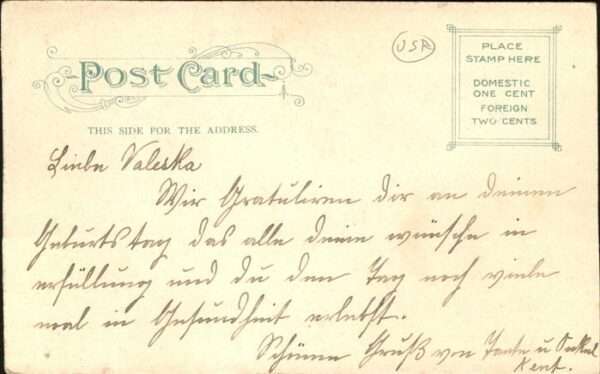 USA
Post Card
PLACE
STAMP HERE
DOMESTIC
ONE CENT
FOREIGN
TWO CENTS
THIS SIDE FOR THE ADDRESS.
Liebe Valeska
Wir Gratuliren dir an deinen
Geburtstag das alle deine wünsche in
erfüllung und du den Tag noch viele
mal in Gesundheit erlebst.
Schönen Gruß von Tante u Onkel